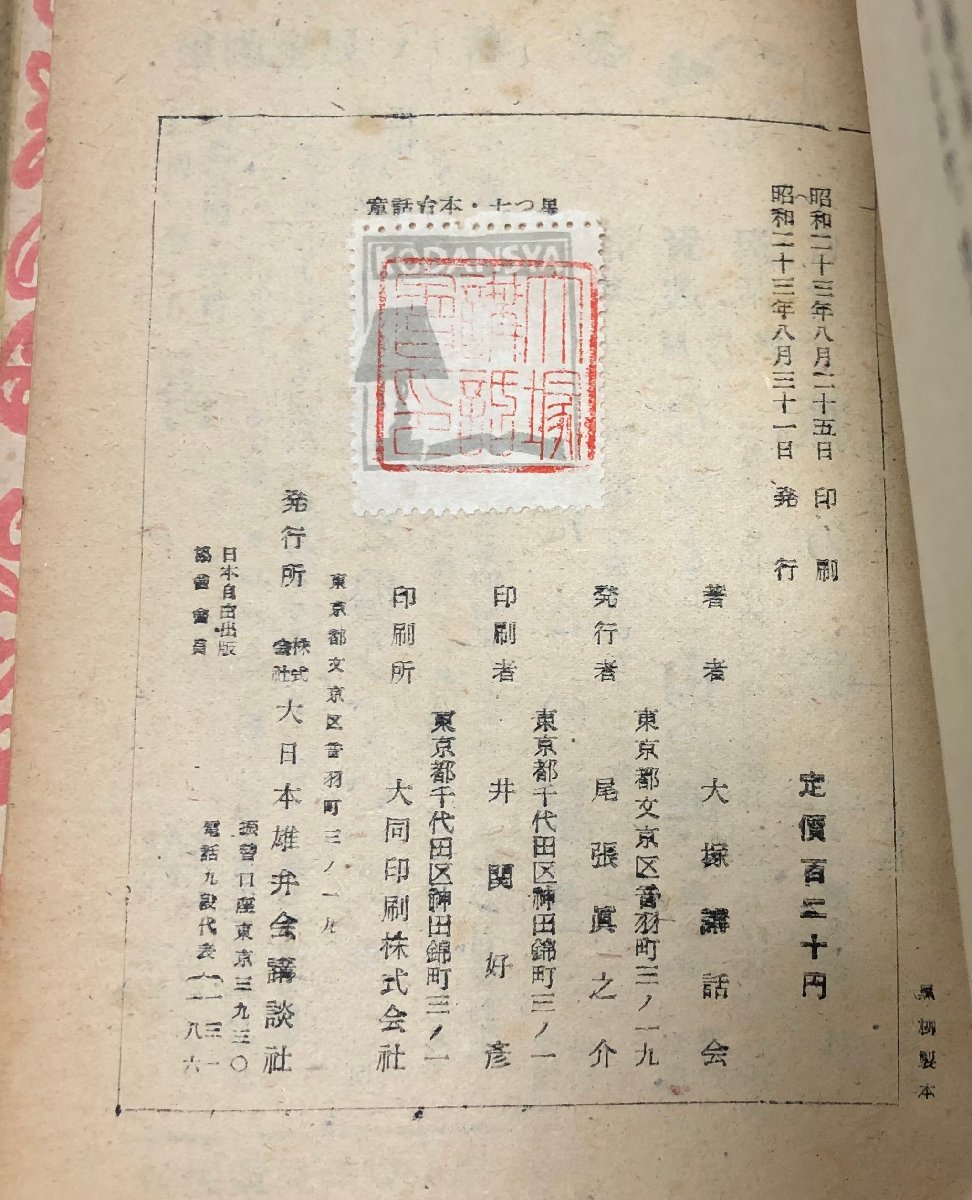 昭和二十三年八月二十五日 印刷
昭和二十三年八月三十一日 発行
童話台本・七つ星
KODANSYA
大塚
講話
會印
定價百二十円
著者 大塚講話会
東京都文京区音羽町三ノ一九
発行者 尾張眞之介
東京都千代田区神田錦町三ノ一
印刷者 井関好彦
東京都千代田区神田錦町三ノ一
印刷所 大同印刷株式会社
東京都文京区音羽町三ノ一九
発行所 株式会社 大日本雄弁会講談社
日本自由出版
協會會員
振替口座東京三九三〇
電話九段代表
黒柳製本